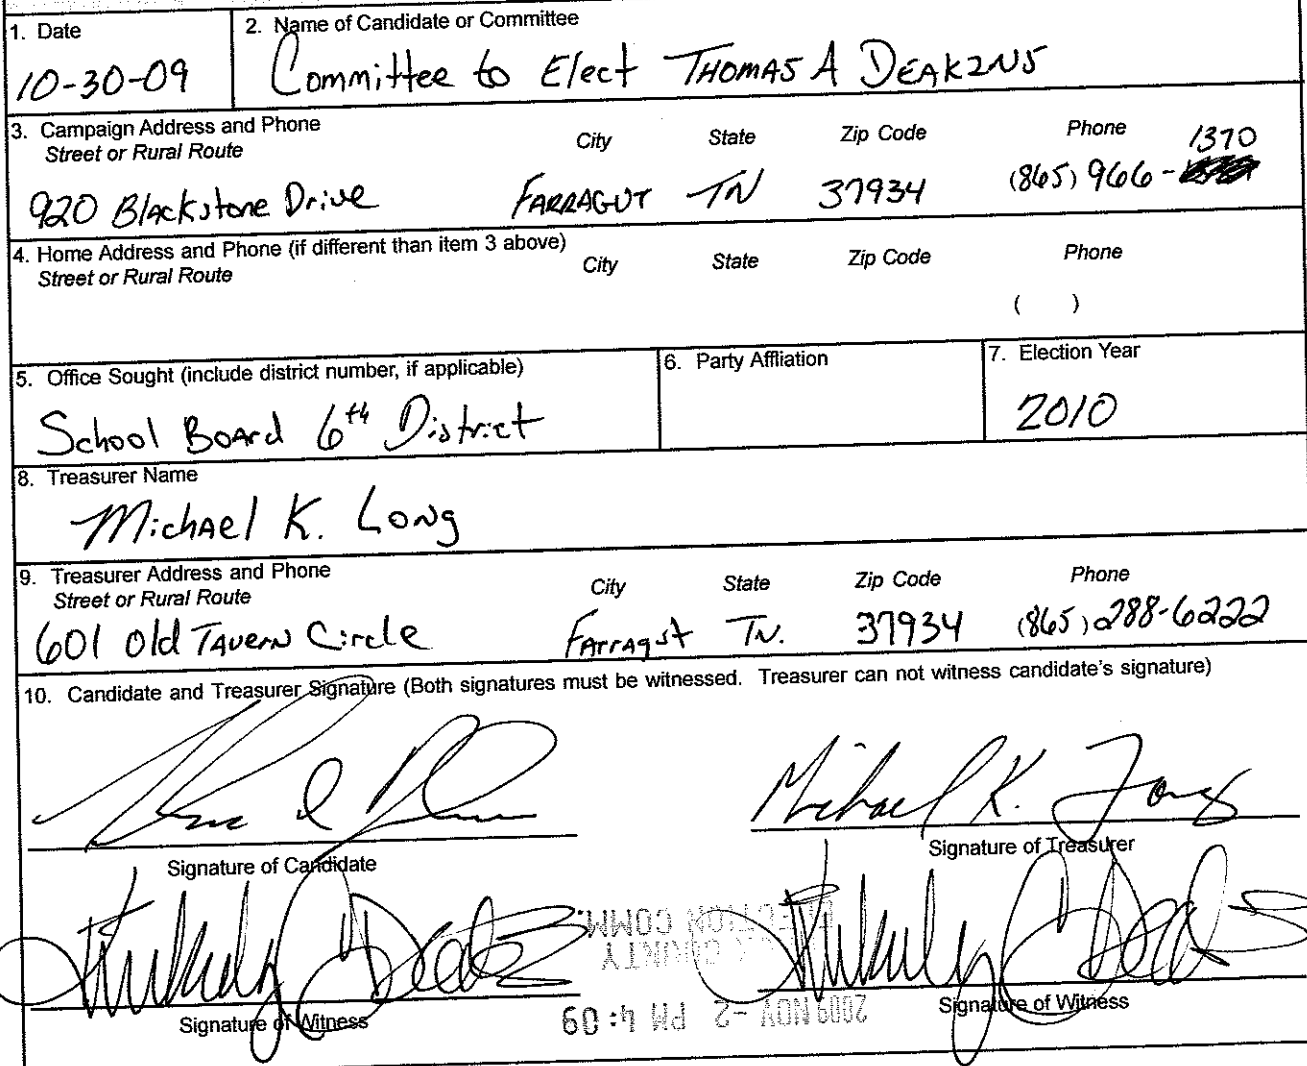 1. Date
10-30-09
2. Name of Candidate or Committee
Committee to Elect THOMAS A DEAKINS
3. Campaign Address and Phone
Street or Rural Route City State Zip Code Phone
1370
920 Blackstone Drive FARRAGUT TN 37934 (865) 966-
4. Home Address and Phone (if different than item 3 above)
Street or Rural Route City State Zip Code Phone
( )
5. Office Sought (include district number, if applicable)
School Board 6th District
6. Party Affliation
7. Election Year
2010
8. Treasurer Name
Michael K. Long
9. Treasurer Address and Phone
Street or Rural Route City State Zip Code Phone
601 Old Tavern Circle Farragut TN. 37934 (865) 288-6222
10. Candidate and Treasurer Signature (Both signatures must be witnessed. Treasurer can not witness candidate's signature)
Michael K. Long
Signature of Candidate Signature of Treasurer
Signature of Witness Signature of Witness
2009 NOV -2 PM 4:09
COUNTY
ELECTION COMM.